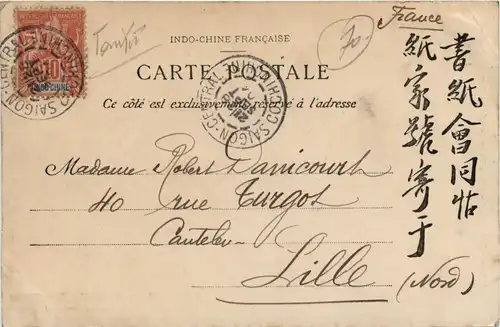 France
INDO-CHINE FRANÇAISE
CARTE POSTALE
Ce côté est exclusivement réservé à l'adresse
10
INDO-CHINE
SAIGON-CENTRAL
COCHINCHINE
SAIGON-CENTRAL
COCHINCHINE
70
書紙會同帖
紙家號寄于
Madame Robert Danicourt
40 rue Turgot
Canteleu
Lille
(Nord)